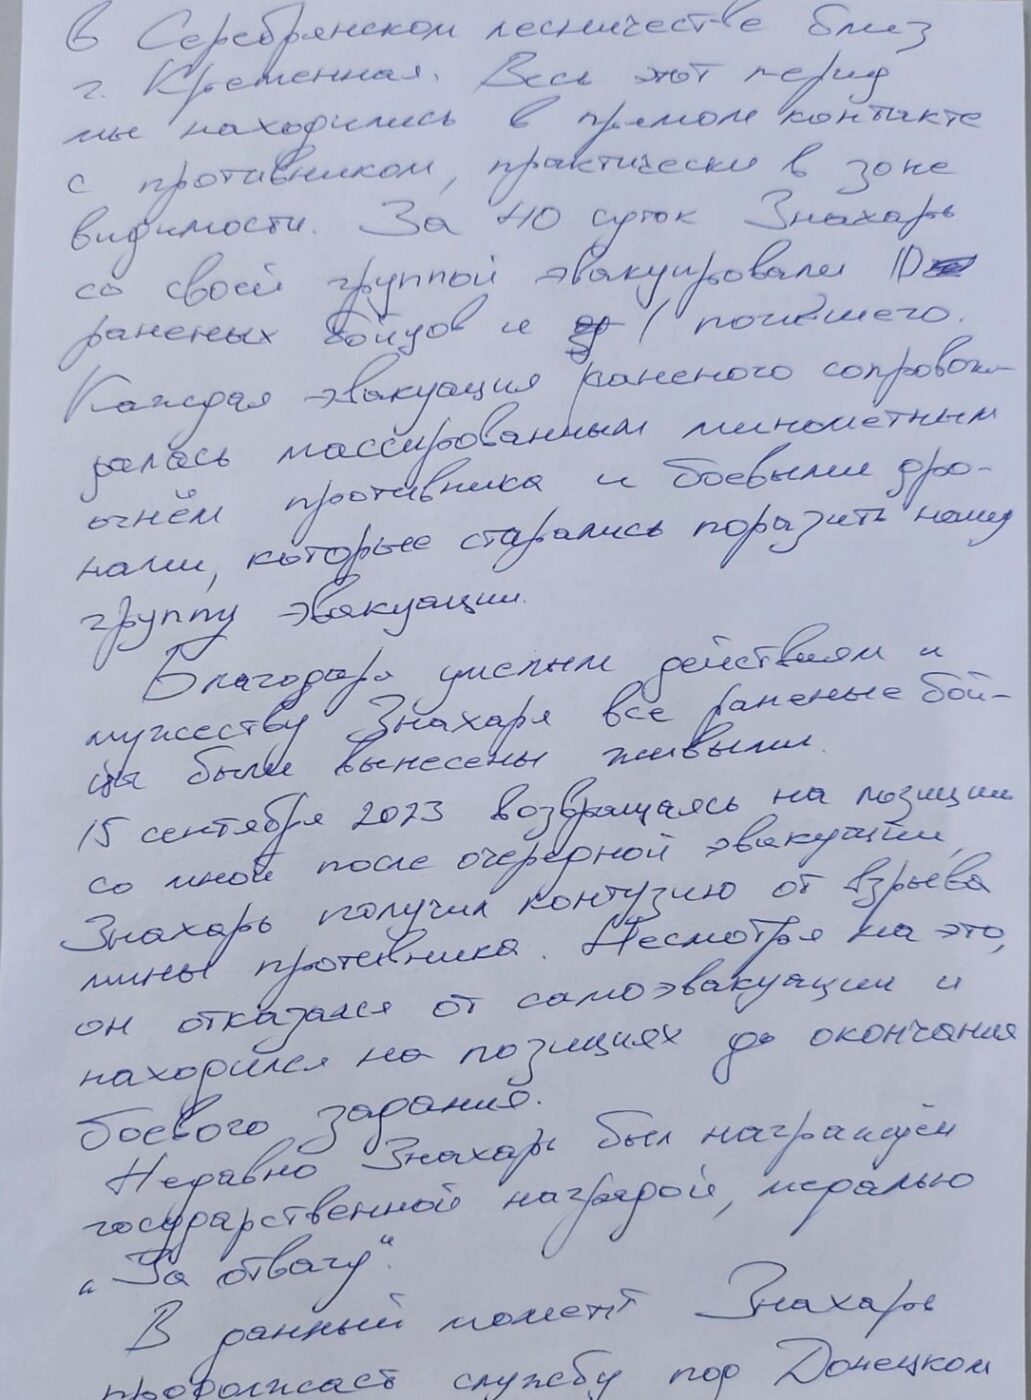 в Серебрянском лесничестве близ
г. Кременная. Весь этот период
мы находились в прямом контакте
с противником, практически в зоне
видимости. За 40 суток Знахарь
со своей группой эвакуировали 10
раненых бойцов и 1 погибшего.
Каждая эвакуация раненого сопровож-
далась массированным миномётным
огнём противника и боевыми дро-
нами, которые старались поразить нашу
группу эвакуации.
Благодаря умелым действиям и
мужеству Знахаря все раненые бой-
цы были вынесены живыми.
15 сентября 2023 возвращаясь на позиции
со мной после очередной эвакуации,
Знахарь получил контузию от взрыва
мины противника. Несмотря на это,
он отказался от самоэвакуации и
находился на позициях до окончания
боевого задания.
Недавно Знахарь был награждён
государственной наградой, медалью
„За отвагу“.
В данный момент Знахарь
продолжает службу под Донецком